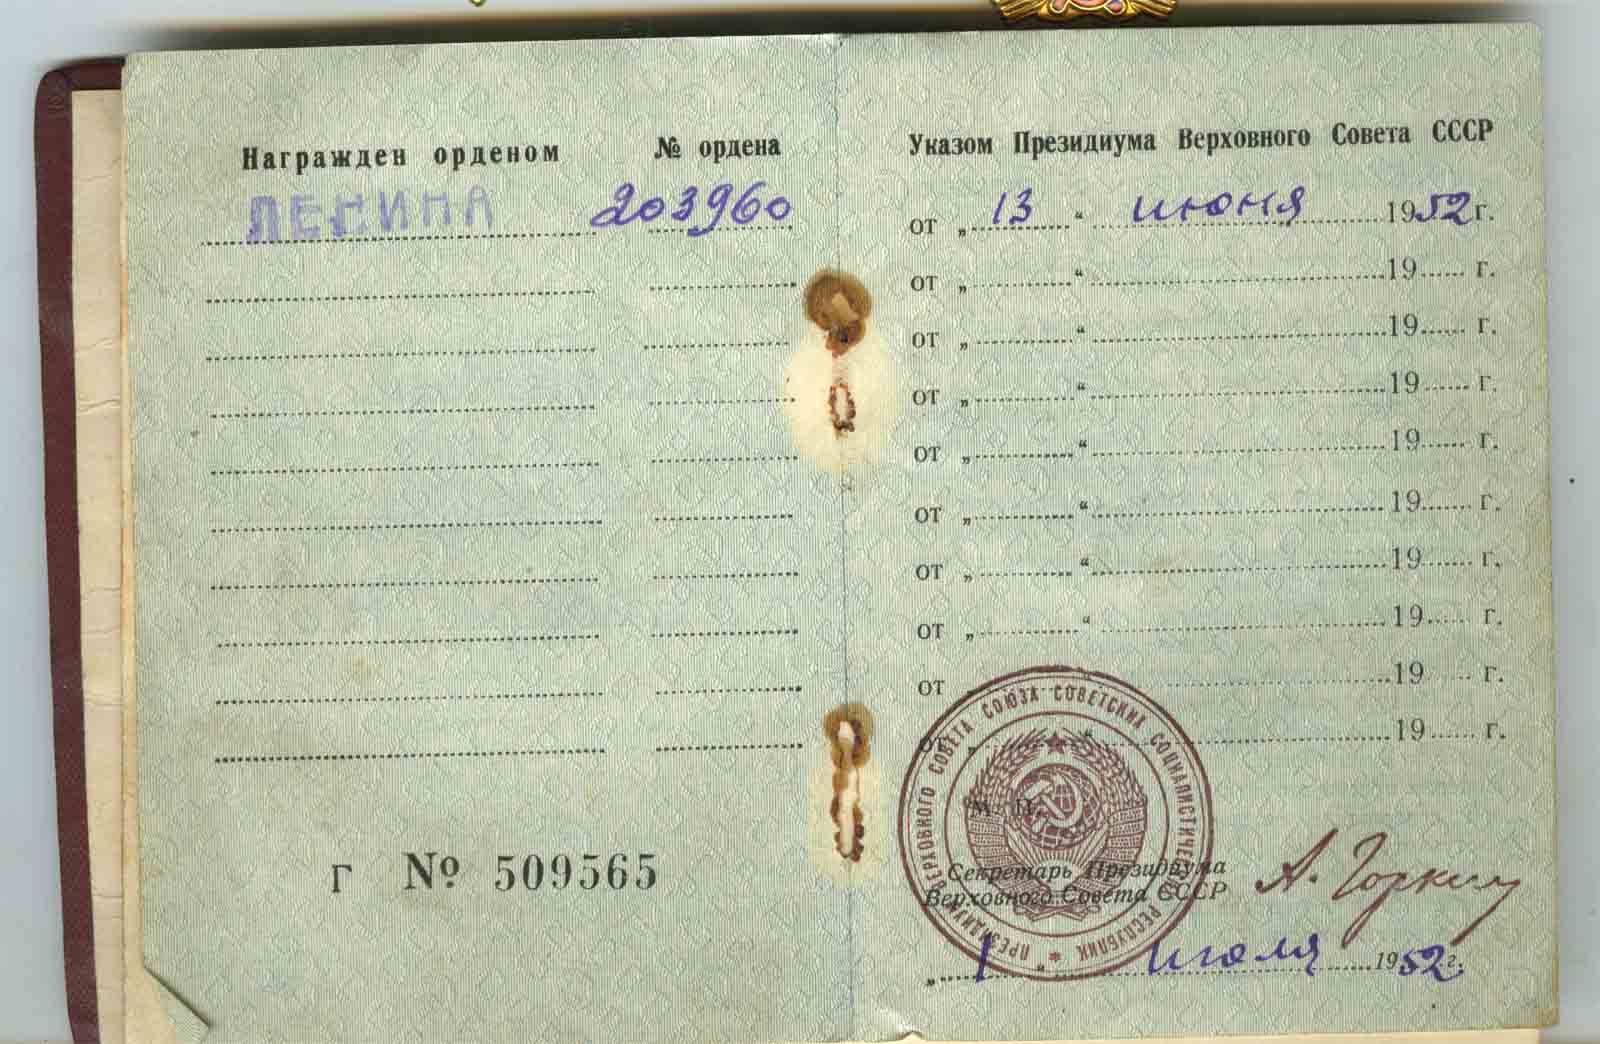 Награжден орденом № ордена
ЛЕНИНА 203960
Г № 509565
Указом Президиума Верховного Совета СССР
от „ 13 “ июня 1952 г.
от „ “ 19 г.
от „ “ 19 г.
от „ “ 19 г.
от „ “ 19 г.
от „ “ 19 г.
от „ “ 19 г.
от „ “ 19 г.
от „ 19 г.
от „ “ 19 г.
М. П.
ПРЕЗИДИУМ ВЕРХОВНОГО СОВЕТА СОЮЗА СОВЕТСКИХ СОЦИАЛИСТИЧЕСКИХ РЕСПУБЛИК
Секретарь Президиума
Верховного Совета СССР А. Горкин
„ 1 “ июля 1952 г.